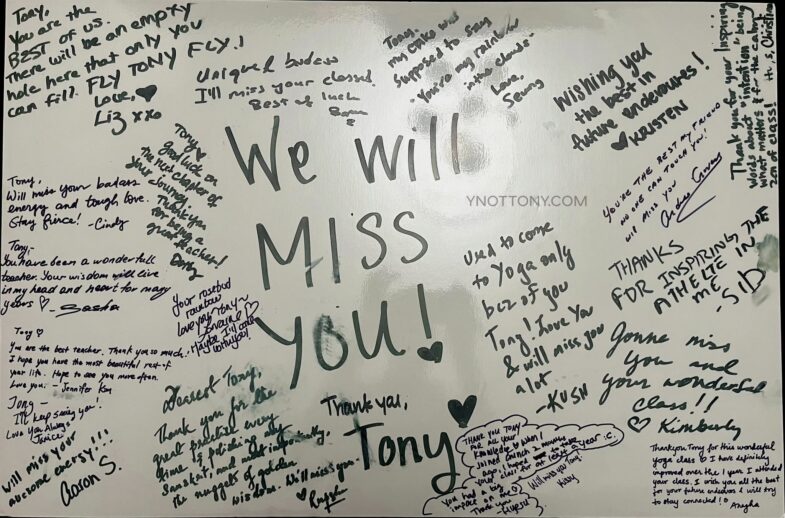 Tony,
You are the
BEST OF US.
There will be an empty
hole here that only you
can fill. FLY TONY FLY!
Love, ♥
Liz xxo
Unique badass
I'll miss your classes!
Best of luck
Tony,
my cake was
supposed to say
"You're my rainbow
in the clouds"
Love,
Seung
Wishing you
the best in
future endeavours!
♥ KRISTEN
Thank you for your inspiring
words about "intention" & being
what matters
zen of class!
H. S. Christina
Tony ♥
good luck on
the next chapter of
your journey.
Thank you
for being a
great teacher!
We will
MISS
YOU! ♥
YNOTTONY.COM
YOU'RE THE BEST MY FRIEND
NO ONE CAN TOUCH YOU!
WILL MISS YOU
Tony,
Will miss your badass
energy and tough love.
Stay fierce! -Cindy
Tony,-
You have been a wonderfull
teacher. Your wisdom will live
in my head and heart for many
years ♥ - Sasha
Your rosebud
rainbow
loves you Tony~
Maybe I'll come
Used to come
to Yoga only
bcz of you
Tony! Love You
& will miss you
a lot
-KUSH
THANKS
FOR INSPIRING THE
ATHELTE IN
ME - SID
Tony ♡
You are the best teacher. Thank you so much.
I hope you have the most beautiful rest of
your life. Hope to see you more often.
Love you. - Jennifer Kim
Tony -
I'll keep seeing you!
Love You Always
Janice
Will miss your
awesome energy!!!
Aaron S.
Dearest Tony,
Thank you for the
great practise every
time & pitching my
Sanskrit! and most importantly,
the nuggets of golden
wisdom. Will miss you.
Thank you, ♥
Tony
Gonna miss
you and
your wonderful
class!!
♡ Kimberly
THANK YOU TONY
FOR ALL YOUR
KNOWLEDGE WHEN I
JOINED CRUNCH 2 months
ago. I hoped to take
your class for at least a year :C.
Will miss you Tony!
You had a big
impact on me
Thank you
Thankyou Tony for this wonderful
yoga class ♡ I have definitely
improved over the 1 year I attended
your class. I wish you all the best
for your future endeavors & will try
to stay connected! ☺
Anagha